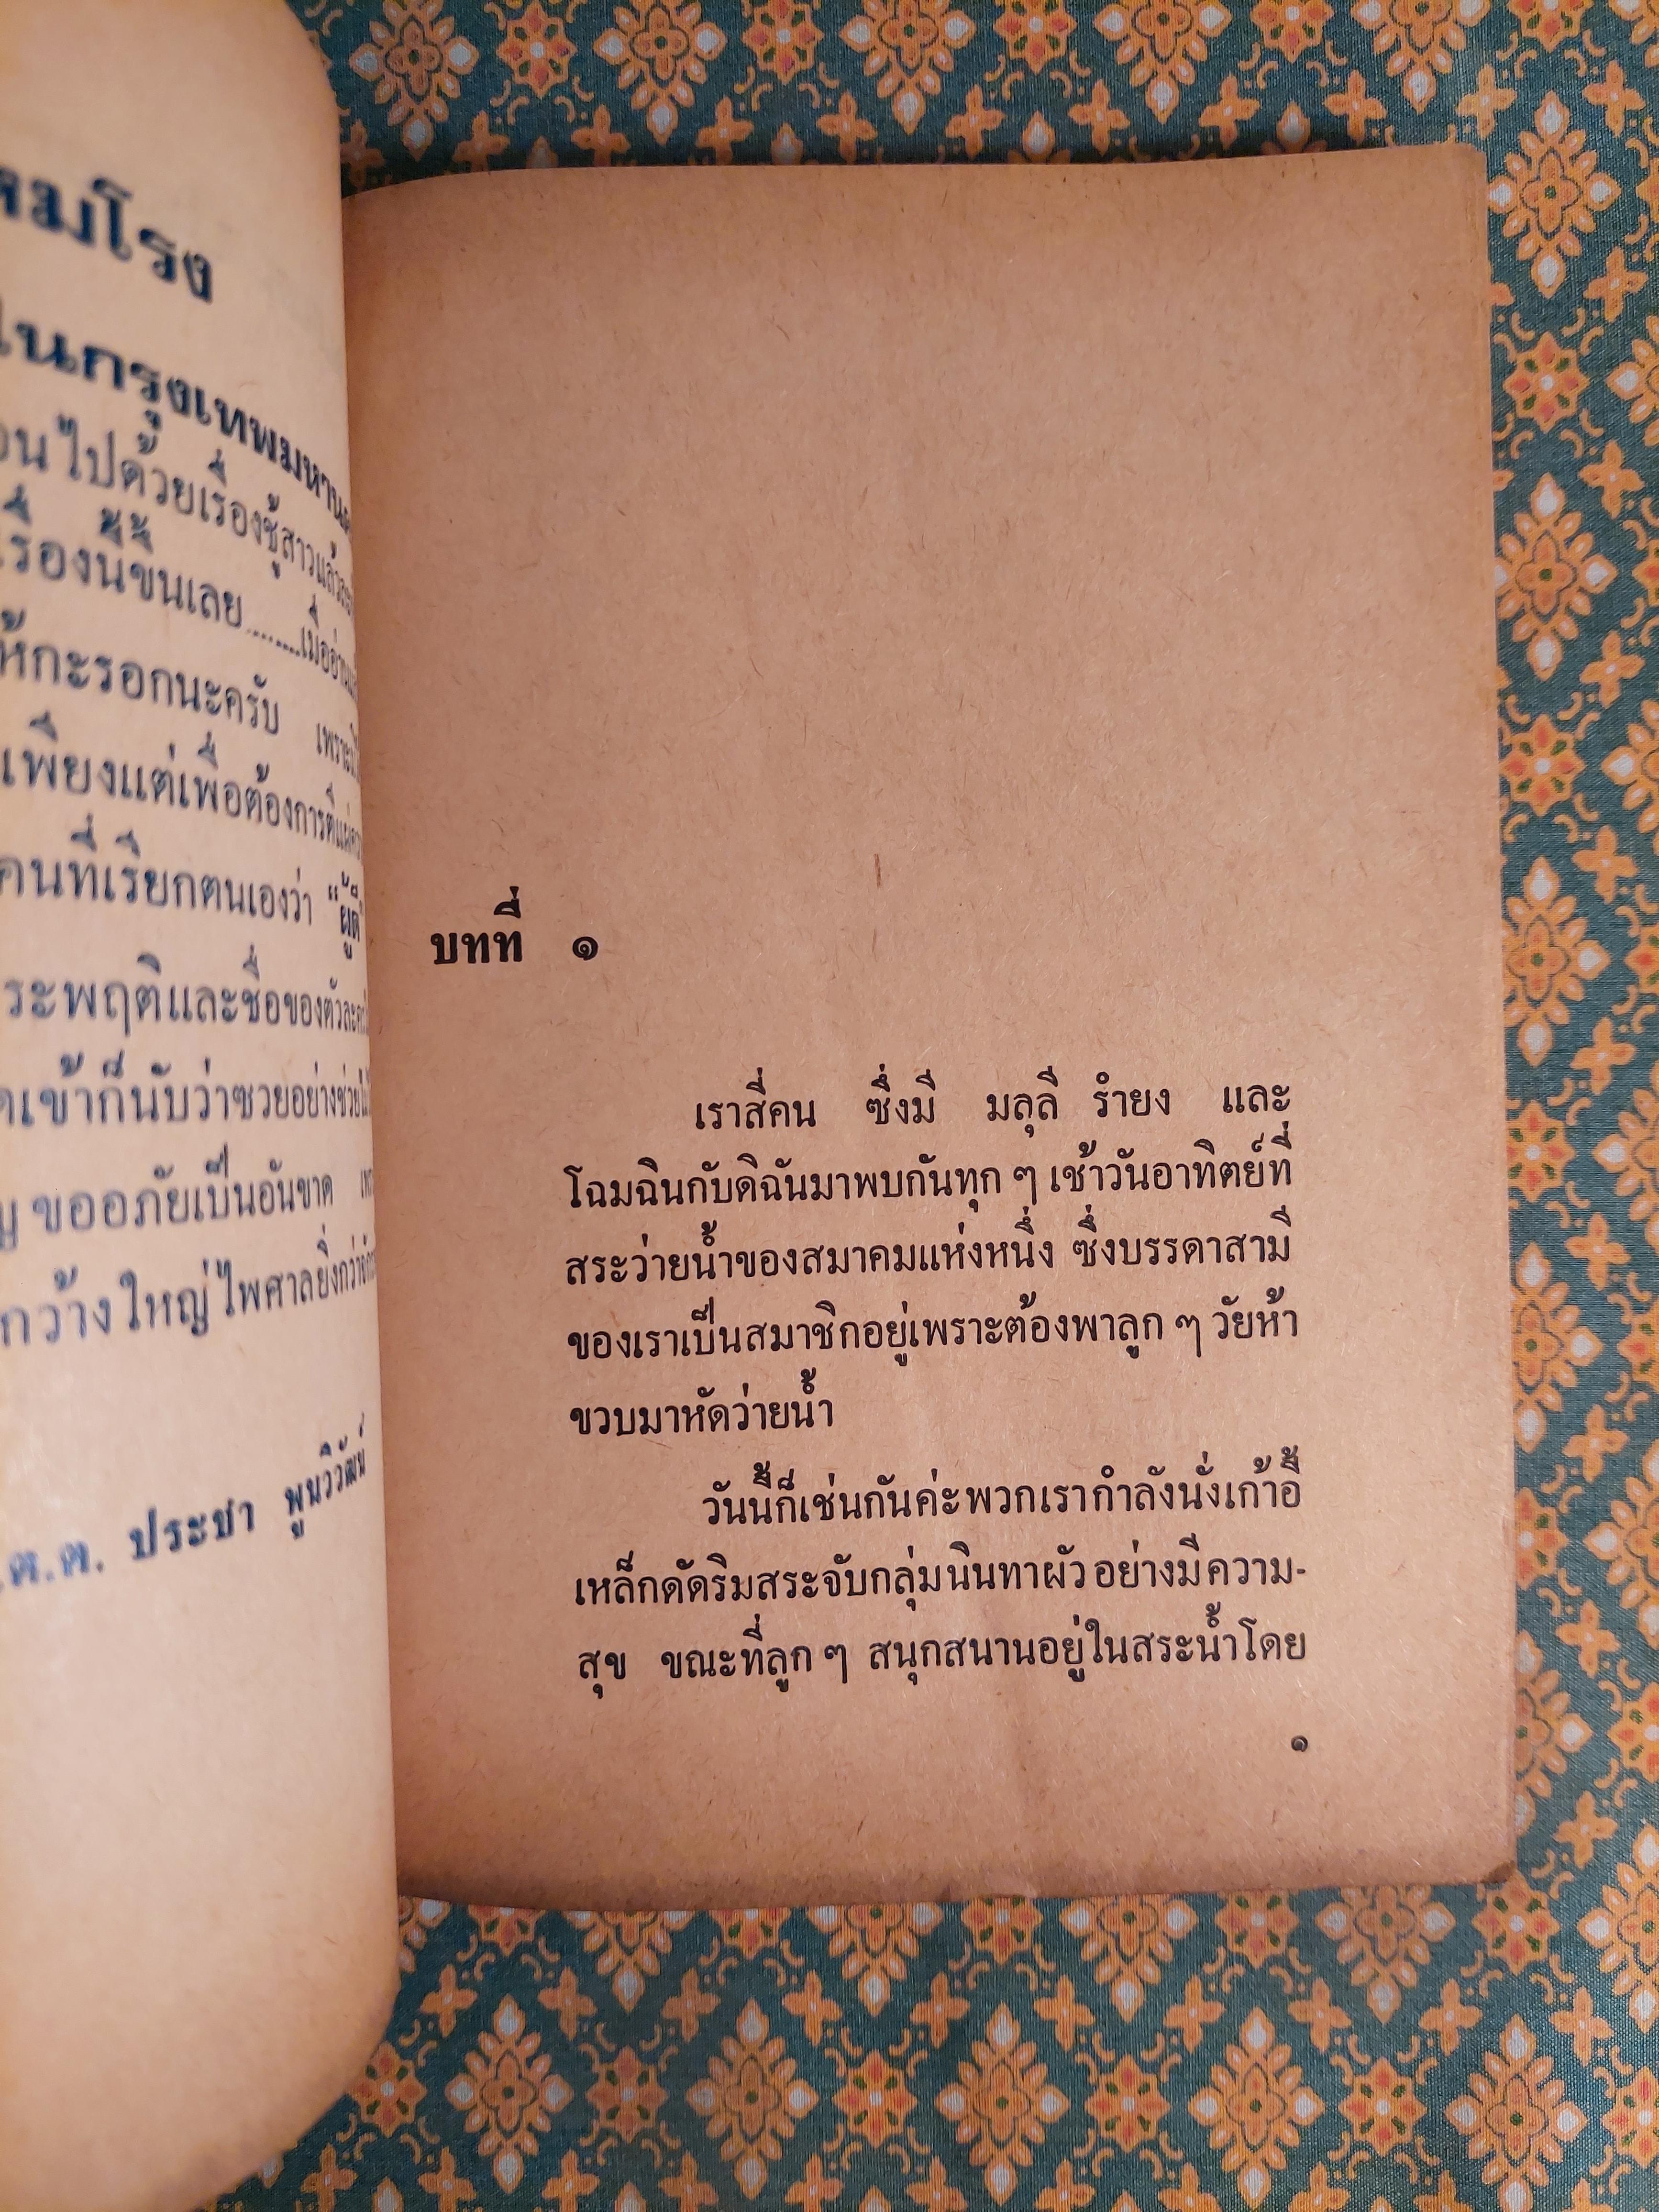 โรง
ในกรุงเทพมหานคร
ไปด้วยเรื่องชู้สาวแล้ว
เรื่องนี้ขึ้นเลย.......เมื่อ
กะรอกนะครับ เพราะ
เพียงแต่เพื่อต้องการตี
คนที่เรียกตนเองว่า “ผู้ดี”
และชื่อของตัวละคร
เข้าก็นับว่าซวยอย่าง
ขออภัยเป็นอันขาด
กว้างใหญ่ไพศาลยิ่งกว่า
ต.ต. ประชา พูนวิวัฒน์
บทที่ ๑
เราสี่คน ซึ่งมี มลุลี รำยง และ
โฉมฉินกับดิฉันมาพบกันทุก ๆ เช้าวันอาทิตย์ที่
สระว่ายน้ำของสมาคมแห่งหนึ่ง ซึ่งบรรดาสามี
ของเราเป็นสมาชิกอยู่เพราะต้องพาลูก ๆ วัยห้า
ขวบมาหัดว่ายน้ำ
วันนี้ก็เช่นกันค่ะพวกเรากำลังนั่งเก้าอี้
เหล็กดัดริมสระจับกลุ่มนินทาผัวอย่างมีความ-
สุข ขณะที่ลูก ๆ สนุกสนานอยู่ในสระน้ำโดย
๑